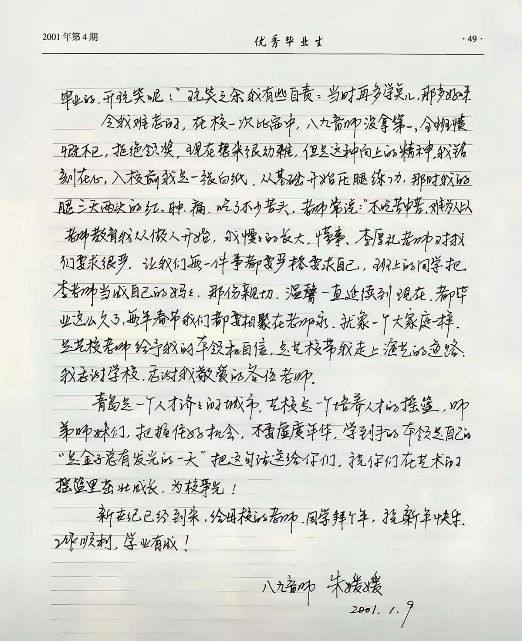 2001年第4期
优秀毕业生
·49·
毕业的,开玩笑呢!"玩笑之余我有些自责:当时再多学点儿,那多好呀
令我难忘的,在校一次比赛中,八九音师没拿第一,全班慷
慨不已,拒绝领奖,现在想来很幼稚,但是这种向上的精神,我铭
刻在心,入校前我是一张白纸,从基础开始压腿练功,那时我的
腿三天两头的红、肿、痛,吃了不少苦头,老师常说:"不吃苦中苦,难为人上
老师教育我从做人开始,我慢慢的长大、懂事、李厚礼老师对我
们要求很严,让我们每一件事都要严格要求自己,班上的同学把
李老师当成自己的妈妈,那份亲切、温馨一直延续到现在,都毕
业这么久了,每年春节我们都要相聚在老师家,就象一个大家庭一样.
是艺校老师给予我的本领和自信,是艺校带我走上演艺的道路.
我感谢学校,感谢我敬爱的各位老师.
青岛是一个人才济济的城市,艺校是一个培养人才的摇篮,师
弟师妹们,把握住好机会,不要虚度年华,学到手的本领是自己的
"是金子总有发光的一天"把这句话送给你们,祝你们在艺术的
摇篮里茁壮成长,为校争光!
新世纪已经到来,给母校的老师、同学拜个年,祝新年快乐.
工作顺利,学业有成!
八九音师 朱媛媛
2001.1.9